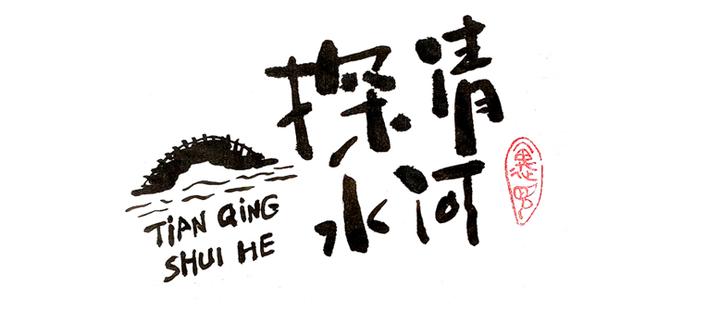 探清
水河
TiAN QiNG
SHUI HE